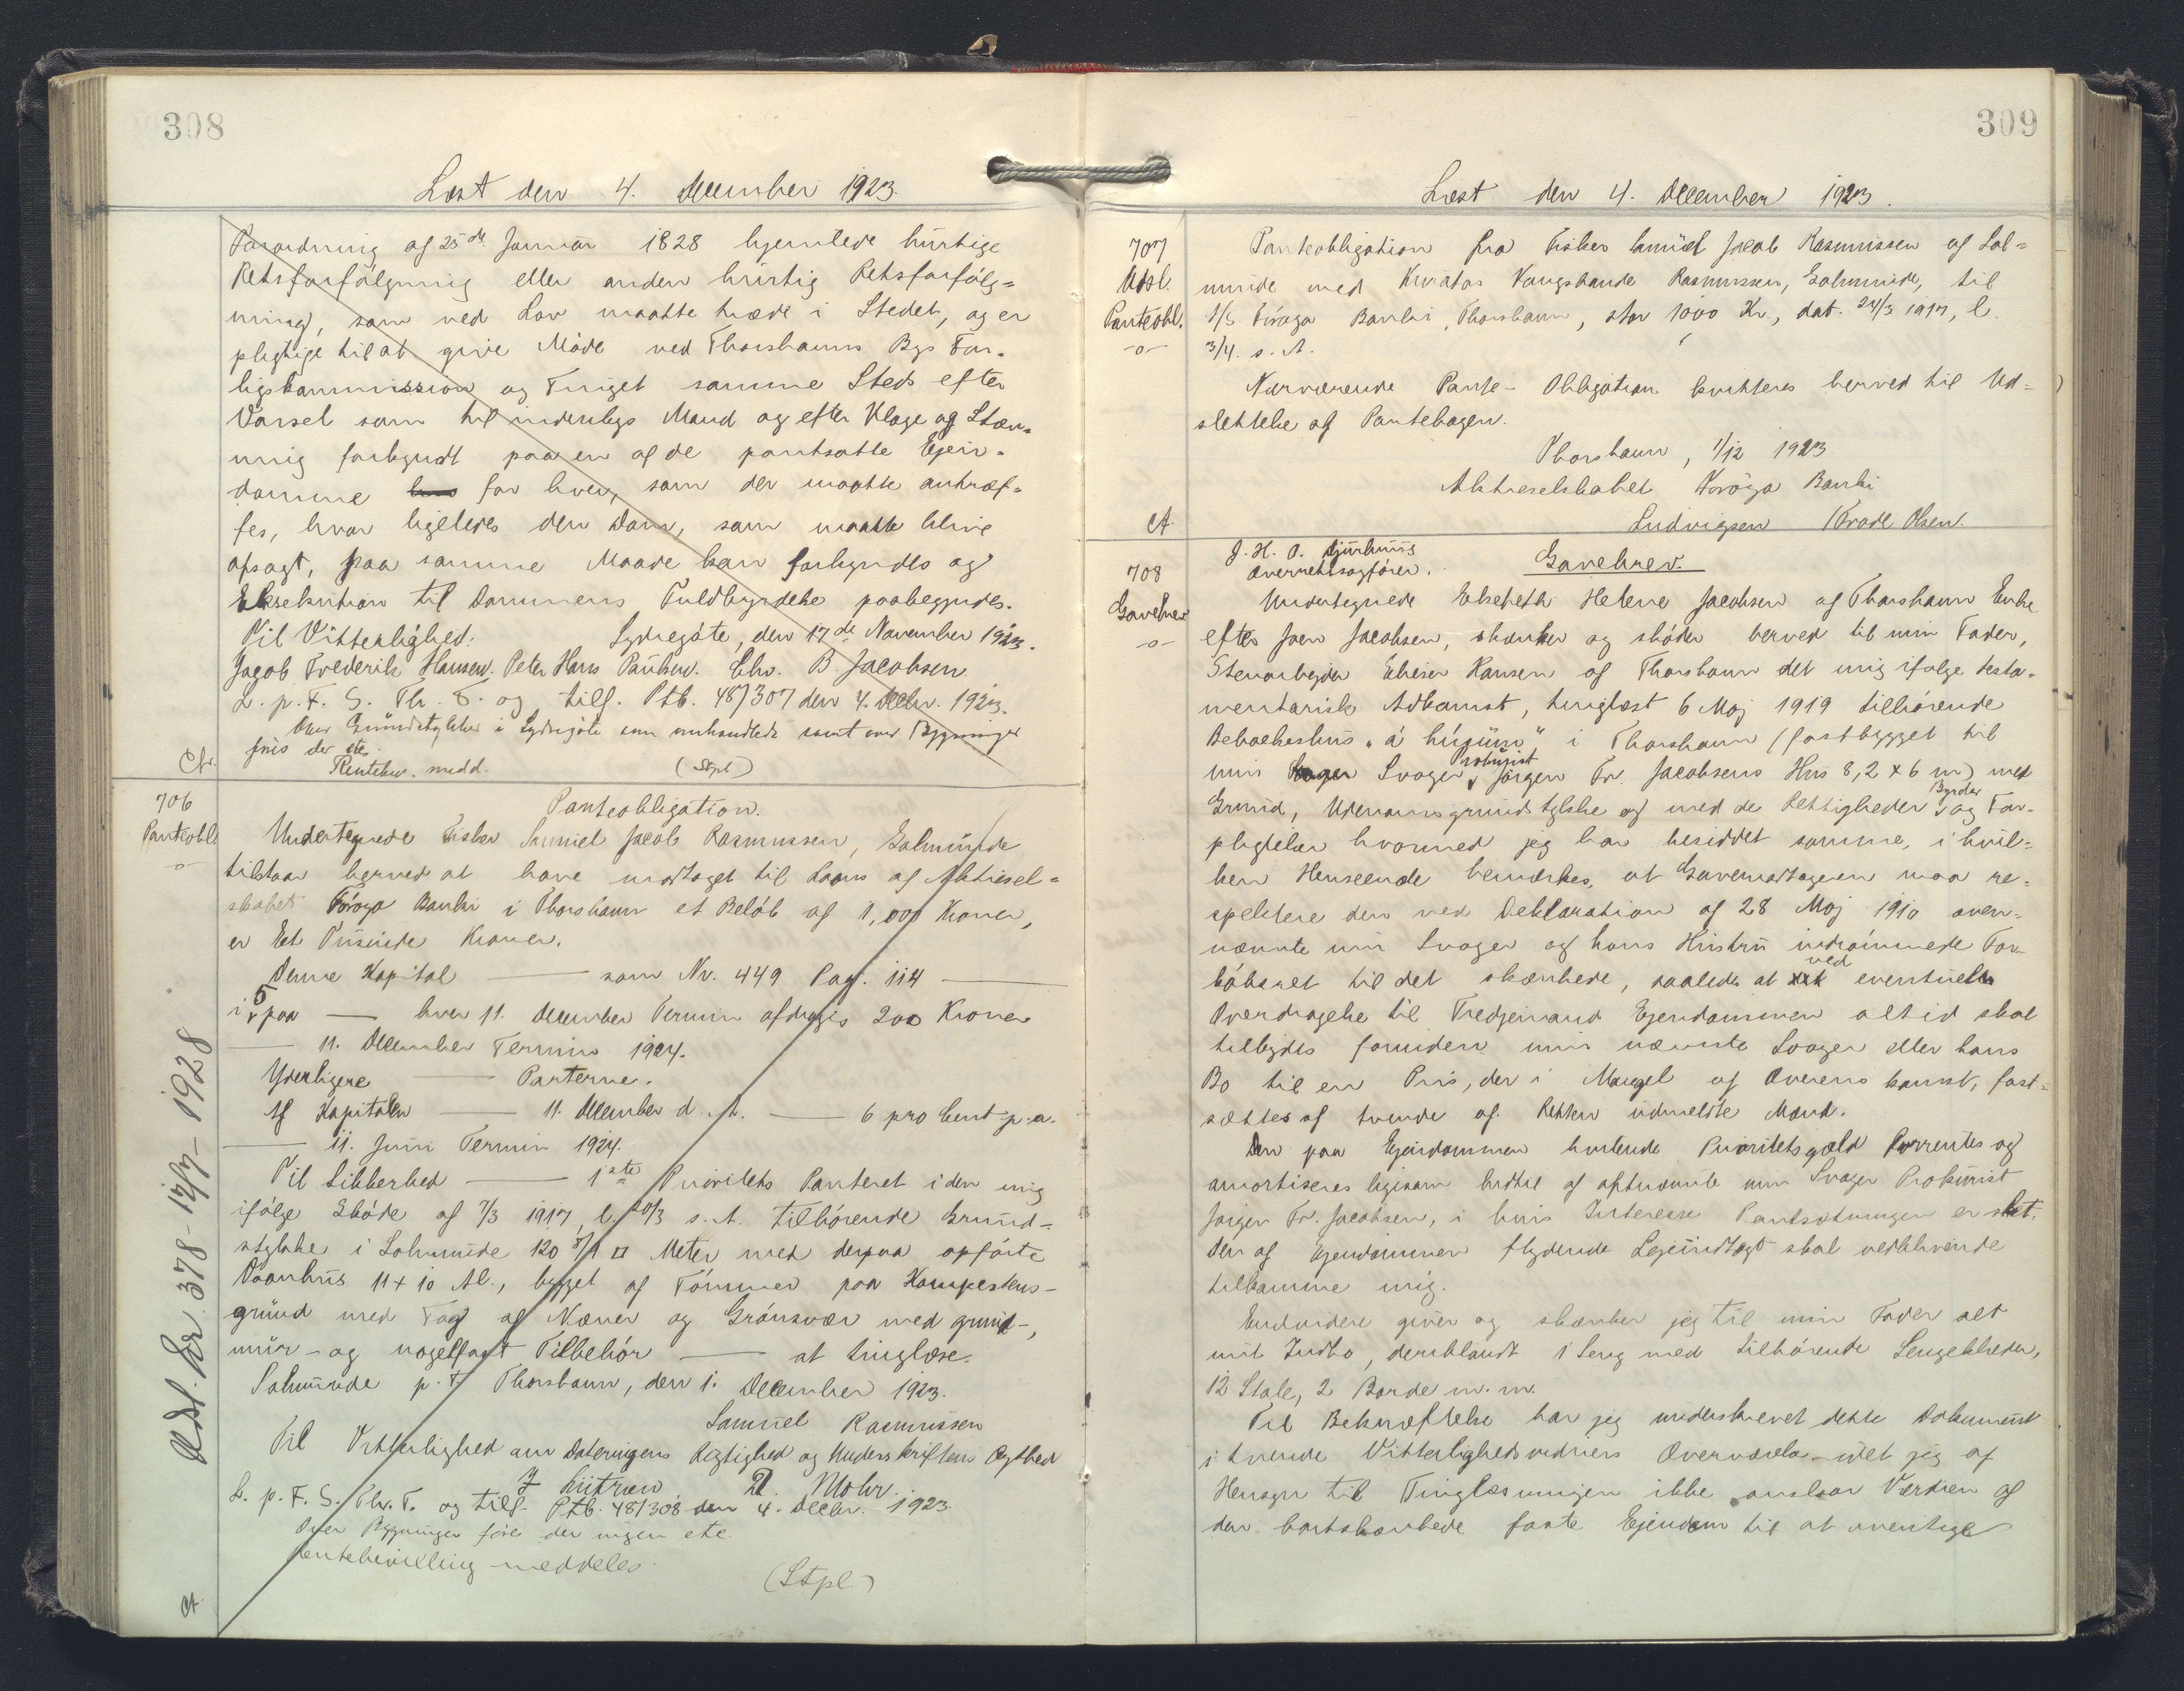 308
Læst den 4. December 1923.
Forordning af 25de Januar 1828 hjemlede hurtige
Retsforfølgning eller anden hurtig Retsforfølg=
ning, som ved Lov maatte træde i Stedet, og er
pligtige til at give Møde ved Thorshavns Bys For=
ligskommission og Tinget samme Sted efter
Varsel som til indenbys Mand og efter Klage og Stæv=
ning forkyndt paa en af de pantsatte Ejen=
domme for hver, som der maatte antræf=
fes, hvor ligeledes den Dom, som maatte blive
afsagt, paa samme Maade kan forkyndes og
Eksekution til Dommens Fuldbyrdelse paabegyndes.
Til Vitterlighed: Sydregøte, den 17de November 1923.
Jacob Frederik Hansen. Peter Hans Poulsen. Chr. B. Jacobsen
L. p. F. S. Th. T. og tilf. Ptb. 48/307 den 4. Decbr. 1923.
Over Grundstykker i Sydregøte som omhandlede samt over Bygninger
føres der etc.
Rentebev. medd. (Stpl.)
Ct.
706
Panteobl.
-o-
Panteobligation.
Undertegnede Fisker Samuel Jacob Rasmussen, Salmunde
tilstaar herved at have modtaget til Laans af Aktiesel=
skabet Føroya Banki i Thorshavn et Beløb af 1,000 Kroner,
er Eet Tusinde Kroner.
Denne Kapital — som Nr. 449 Pag. 114 —
i 5 paa — hver 11. December Termin afdrages 200 Kroner
— 11. December Termin 1924.
Yderligere — Parterne.
Af Kapitalen — 11. December d. A. — 6 pro Cent p.a.
— 11. Juni Termin 1924.
Til Sikkerhed — 1ste Prioritets Panteret i den mig
ifølge Skøde af 7/3 1917, l. 20/3 s. A. tilhørende Grund=
stykke i Salmunde 120 □ Meter med derpaa opførte
Vaanhus 11 x 10 Al., bygget af Tømmer paa Kampestens-
grund med Tag af Næver og Grønsvær med grund-,
mur- og nagelfast Tilbehør — at tinglæse.
Salmunde p. t. Thorshavn, den 1. December 1923.
Samuel Rasmussen
Til Vitterlighed om Dateringens Rigtighed og Underskriftens Ægthed
Mohr.
L. p. F. S. Th. T. og tilf. Ptb. 48/308 den 4. Decbr. 1923.
Over Bygninger føres der ingen etc.
Rentebevilling meddeles.
(Stpl.)
Ct.
Udsl. Nr. 378 - 17/7 - 1928
309
Læst den 4. December 1923.
707
Udsl.
Panteobl.
-o-
Panteobligation fra Fisker Samuel Jacob Rasmussen af Sal=
munde med Kurator Rasmussen, Salmunde, til
A/S Føroya Banki, Thorshavn, stor 1000 Kr., dat. 24/3 1917, l.
3/4. s. A.
Nærværende Pante-Obligation kvitteres herved til Ud=
slettelse af Pantebogen.
Thorshavn, 1/12 1923
Aktieselskabet Føroya Banki
Ludvigsen Poul Olsen.
Ct.
708
Gavebrev
-o-
J. H. O. Djurhuus
Overretssagfører.
Gavebrev.
Undertegnede Elsebeth Helene Jacobsen af Thorshavn Enke
efter Joen Jacobsen, skænker og skøder herved til min Fader,
Stenarbejder Elieser Hansen af Thorshavn det mig ifølge testa=
mentarisk Adkomst, tinglæst 6 Maj 1919 tilhørende
Beboelseshus i Thorshavn (fastbygget til
min Svoger Prokurist Jørgen Fr. Jacobsens Hus 8,2 x 6 m) med
Grund, Udenomsgrundstykke og med de Rettigheder Byrder og For=
pligtelser hvormed jeg har besiddet samme, i hvil=
ken Henseende bemærkes, at Gavemodtageren maa re=
spektere den ved Deklaration af 28 Maj 1910 oven=
nævnte min Svoger og hans Hustru indrømmede For=
købsret til det skænkede, saaledes at ved eventuelle
Overdragelse til Tredjemand Ejendommen altid skal
tilbydes forinden min nævnte Svoger eller hans
Bo til en Pris, der i Mangel af Overenskomst, fast=
sættes af tvende af Retten udmeldte Mænd.
Den paa Ejendommen hvilende Prioritetsgæld forrentes og
amortiseres ligesom hidtil af oftnævnte min Svoger Prokurist
Jørgen Fr. Jacobsen, i hvis Interesse Pantsætningen er sket.
Den af Ejendommen flydende Lejeindtægt skal vedblivende
tilkomme mig.
Endvidere giver og skænker jeg til min Fader alt
mit Indbo, deriblandt 1 Seng med tilhørende Sengeklæder,
12 Stole, 2 Borde m. m.
Til Bekræftelse har jeg underskrevet dette Dokument
i tvende Vitterlighedsvidners Overværelse - idet jeg af
Hensyn til Tinglæsningen ikke anslaar Værdien af
den bortskænkede faste Ejendom til at overstige